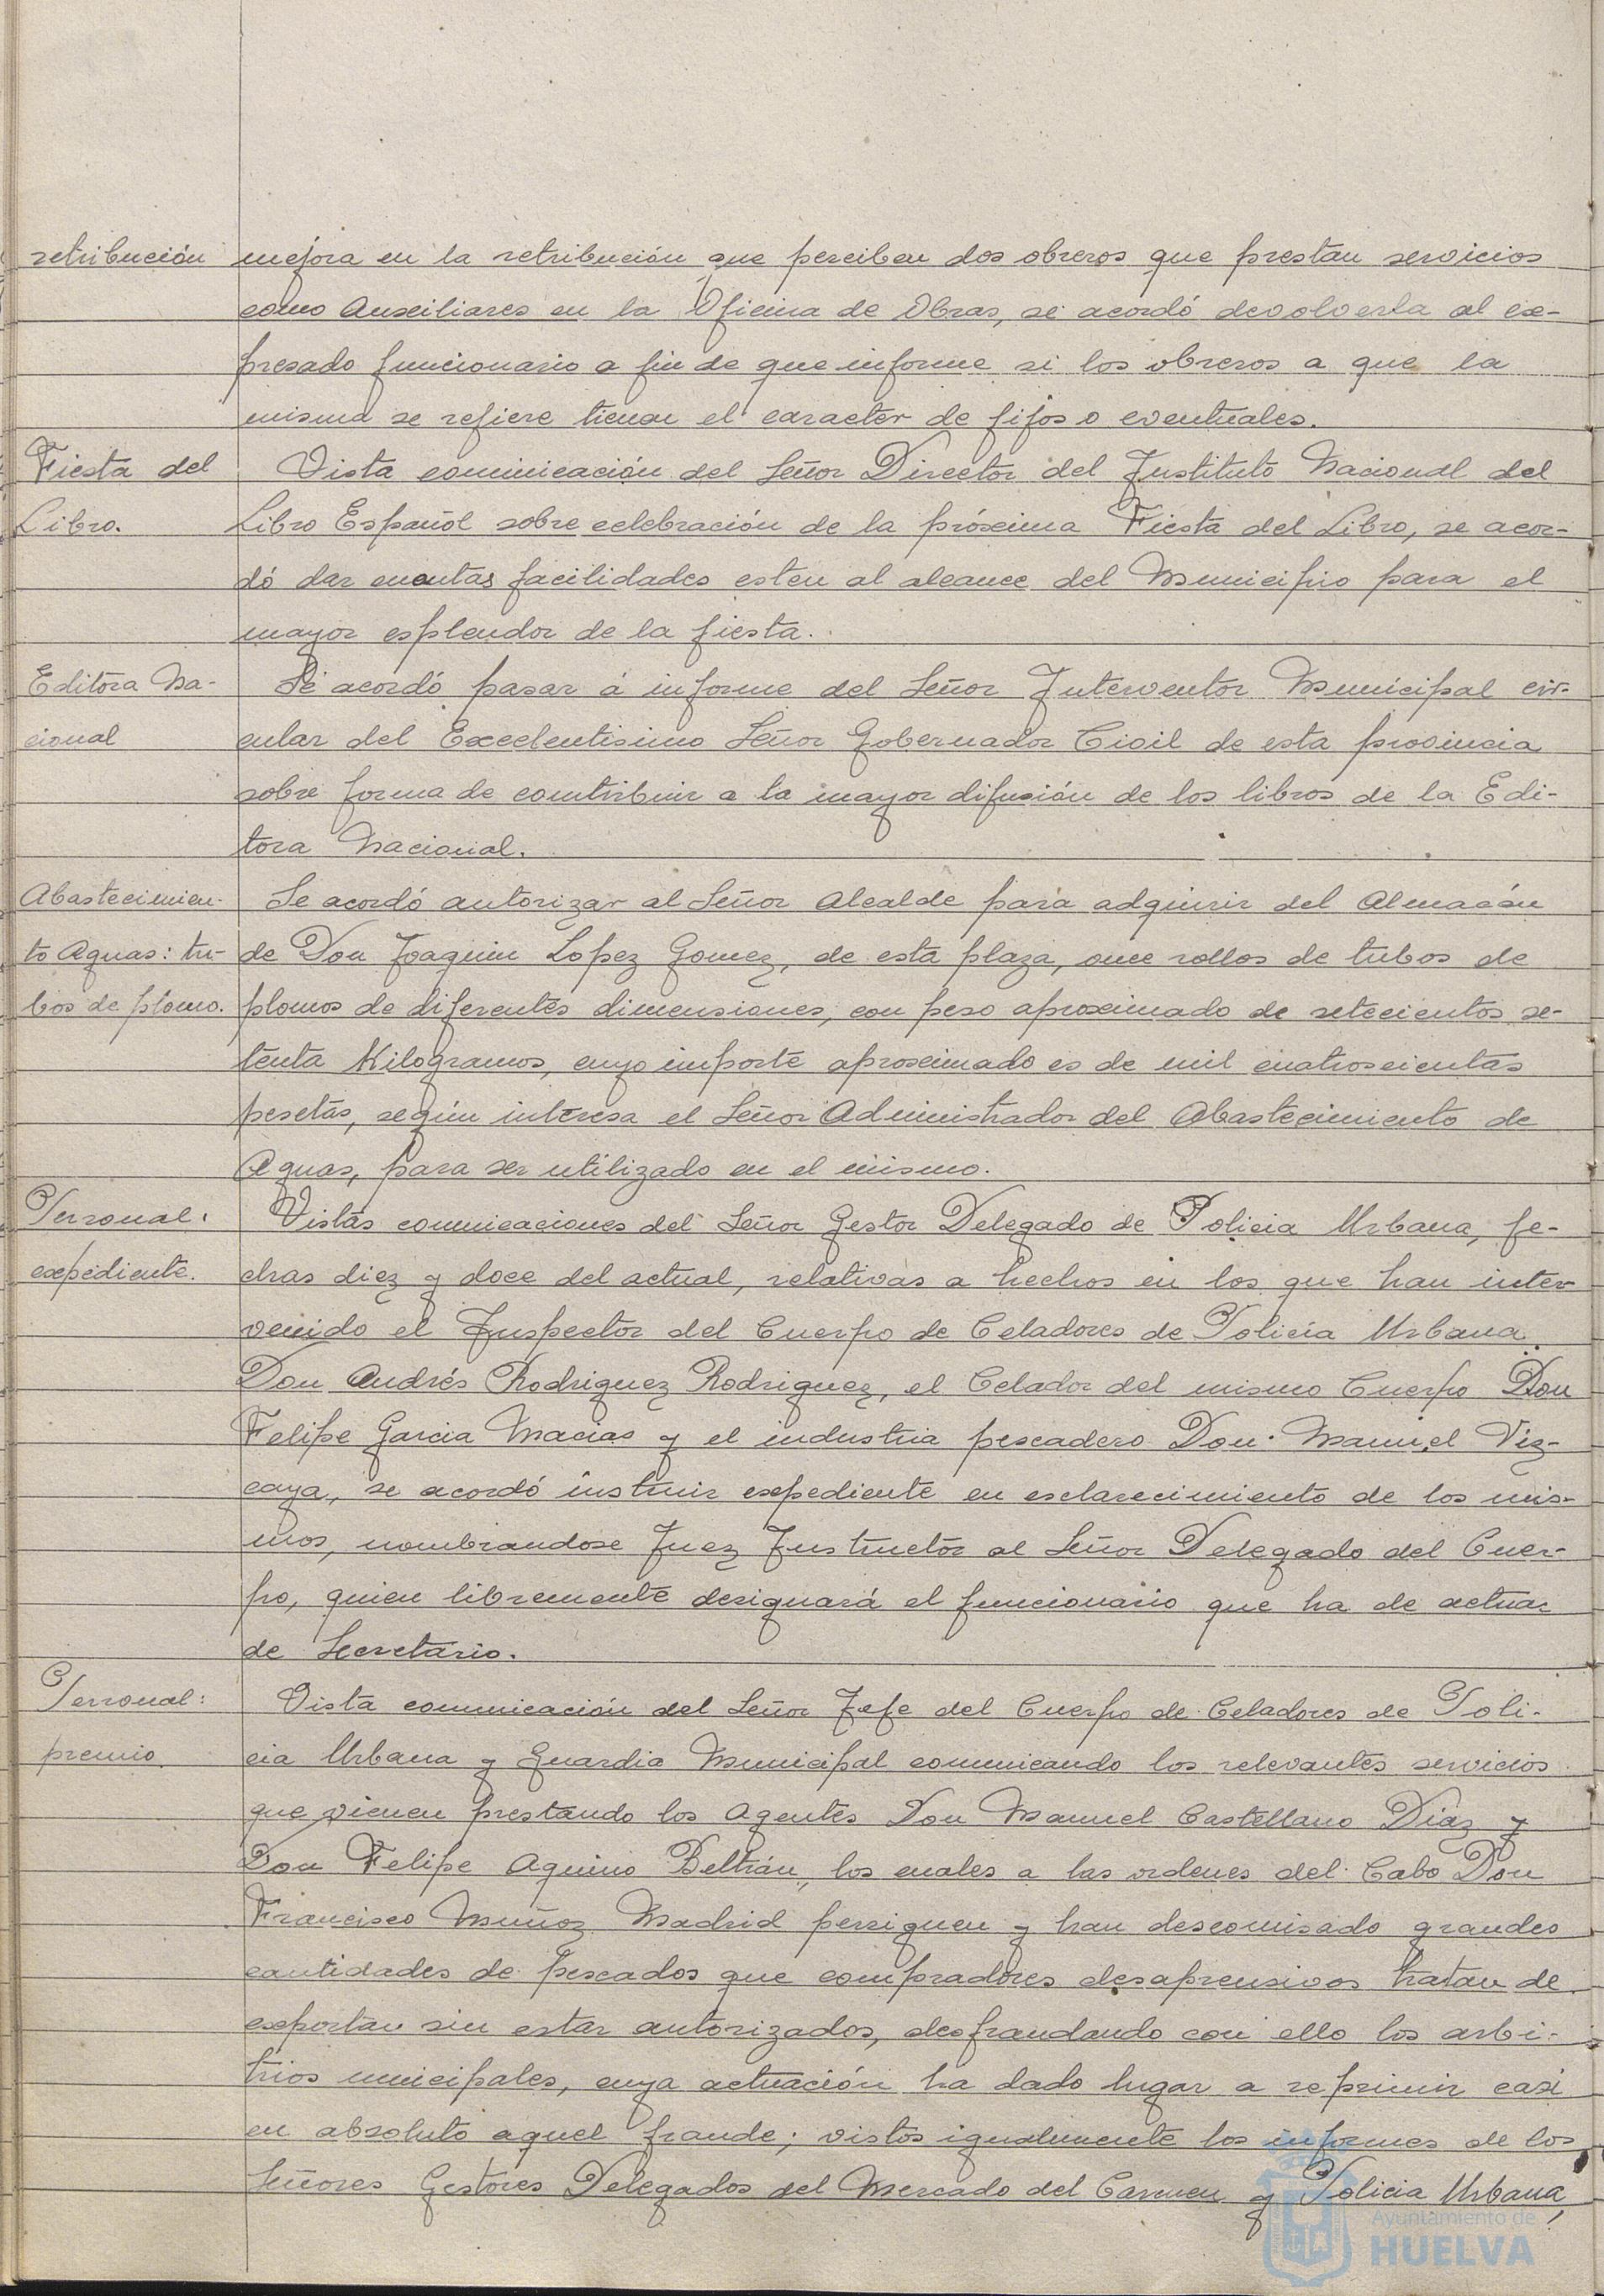 retribución mejora en la retribución que perciben dos obreros que prestan servicios
como Auxiliares en la Oficina de Obras, se acordó devolverla al ex-
presado funcionario a fin de que informe si los obreros a que la
misma se refiere tienen el caracter de fijos o eventuales.
Fiesta del Vista comunicación del Señor Director del Instituto Nacional del
Libro. Libro Español sobre celebración de la próxima Fiesta del Libro, se acor-
dó dar cuantas facilidades esten al alcance del Municipio para el
mayor esplendor de la fiesta.
Editora Na- Se acordó pasar á informe del Señor Interventor Municipal cir-
cional cular del Excelentisimo Señor Gobernador Civil de esta provincia
sobre forma de contribuir a la mayor difusión de los libros de la Edi-
tora Nacional.
Abastecimien- Se acordó autorizar al Señor Alcalde para adquirir del Almacén
to Aguas: tu- de Don Joaquin Lopez Gomez, de esta plaza, once rollos de tubos de
bos de plomo. plomos de diferentes dimensiones, con peso aproximado de setecientos se-
tenta Kilogramos, cuyo importe aproximado es de mil cuatroscientas
pesetas, según interesa el Señor Administrador del Abastecimiento de
Aguas, para ser utilizado en el mismo.
Personal: Vistas comunicaciones del Señor Gestor Delegado de Policia Urbana, fe-
expediente. chas diez y doce del actual, relativas a hechos en los que han inter
venido el Inspector del Cuerpo de Celadores de Policía Urbana
Don Andrés Rodriguez Rodriguez, el Celador del mismo Cuerpo Don
Felipe Garcia Macias y el industria pescadero Don Manuel Viz-
caya, se acordó instruir expediente en esclarecimiento de los mis-
mos, nombrandose Juez Instructor al Señor Delegado del Cuer-
po, quien libremente designará el funcionario que ha de actuar
de Secretario.
Personal: Vista comunicación del Señor Jefe del Cuerpo de Celadores de Poli-
premio. cia Urbana y Guardia Municipal comunicando los relevantes servicios
que vienen prestando los Agentes Don Manuel Castellano Diaz y
Don Felipe Aquino Beltrán, los cuales a las ordenes del Cabo Don
Francisco Muñoz Madrid persiguen y han descomisado grandes
cantidades de pescados que compradores desaprensivos tratan de
exportar sin estar autorizados, defraudando con ello los arbi-
trios municipales, cuya actuación ha dado lugar a reprimir casi
en absoluto aquel fraude; vistos igualmente los informes de los
Señores Gestores Delegados del Mercado del Carmen y Policia Urbana,
Ayuntamiento de
HUELVA